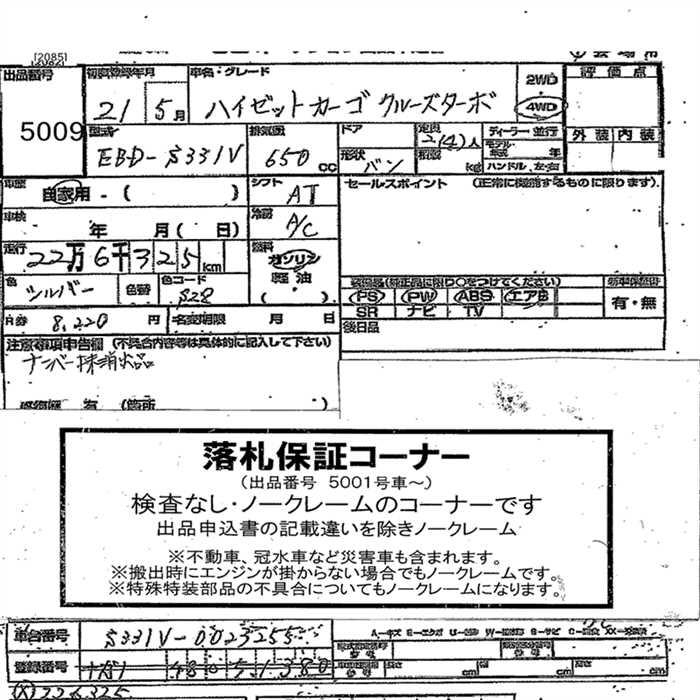 [2085]
出品番号 初度登録年月 車名・グレード 2WD 評価点
5009 21 5月 ハイゼットカーゴ クルーズターボ 4WD
型式 排気量 ドア 定員 2(4)人 ディーラー 並行 外装 内装
EBD-S331V 650cc 形状 バン 積載 kg モデル年式 年
ハンドル 左・右
車歴 自家用・( ) シフト AT セールスポイント (正常に機能するものに限ります)
車検 年 月( 日) 冷房 A/C
走行 22万6千325km 燃料 ガソリン
軽油
( )
色 シルバー 色替 色コード S28 装備品(純正品に限り○をつけてください)
PS PW ABS エアB 有・無
SR ナビ TV
R券 8,220円 名変期限 月 日 後日品
注意事項申告欄 (不具合内容等は具体的に記入して下さい)
ナンバー抹消出品
有 (箇所 )
落札保証コーナー
(出品番号 5001号車~)
検査なし・ノークレームのコーナーです
出品申込書の記載違いを除きノークレーム
※不動車、冠水車など災害車も含まれます。
※搬出時にエンジンが掛からない場合でもノークレームです。
※特殊特装部品の不具合についてもノークレームになります。
車台番号 S331V-0023255
登録番号 480 長さ cm cm cm
(X)226325